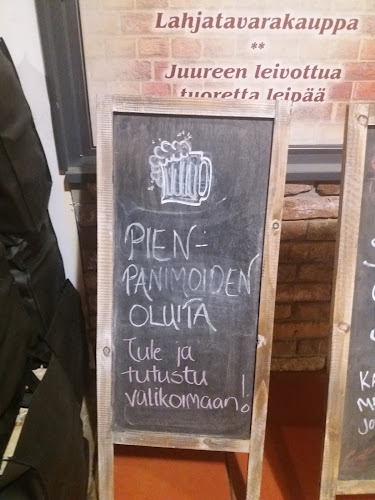 Lahjatavarakauppa
**
Juureen leivottua
tuoretta leipää
PIEN-
PANIMOIDEN
OLUITA
Tule ja
tutustu
valikoimaan!